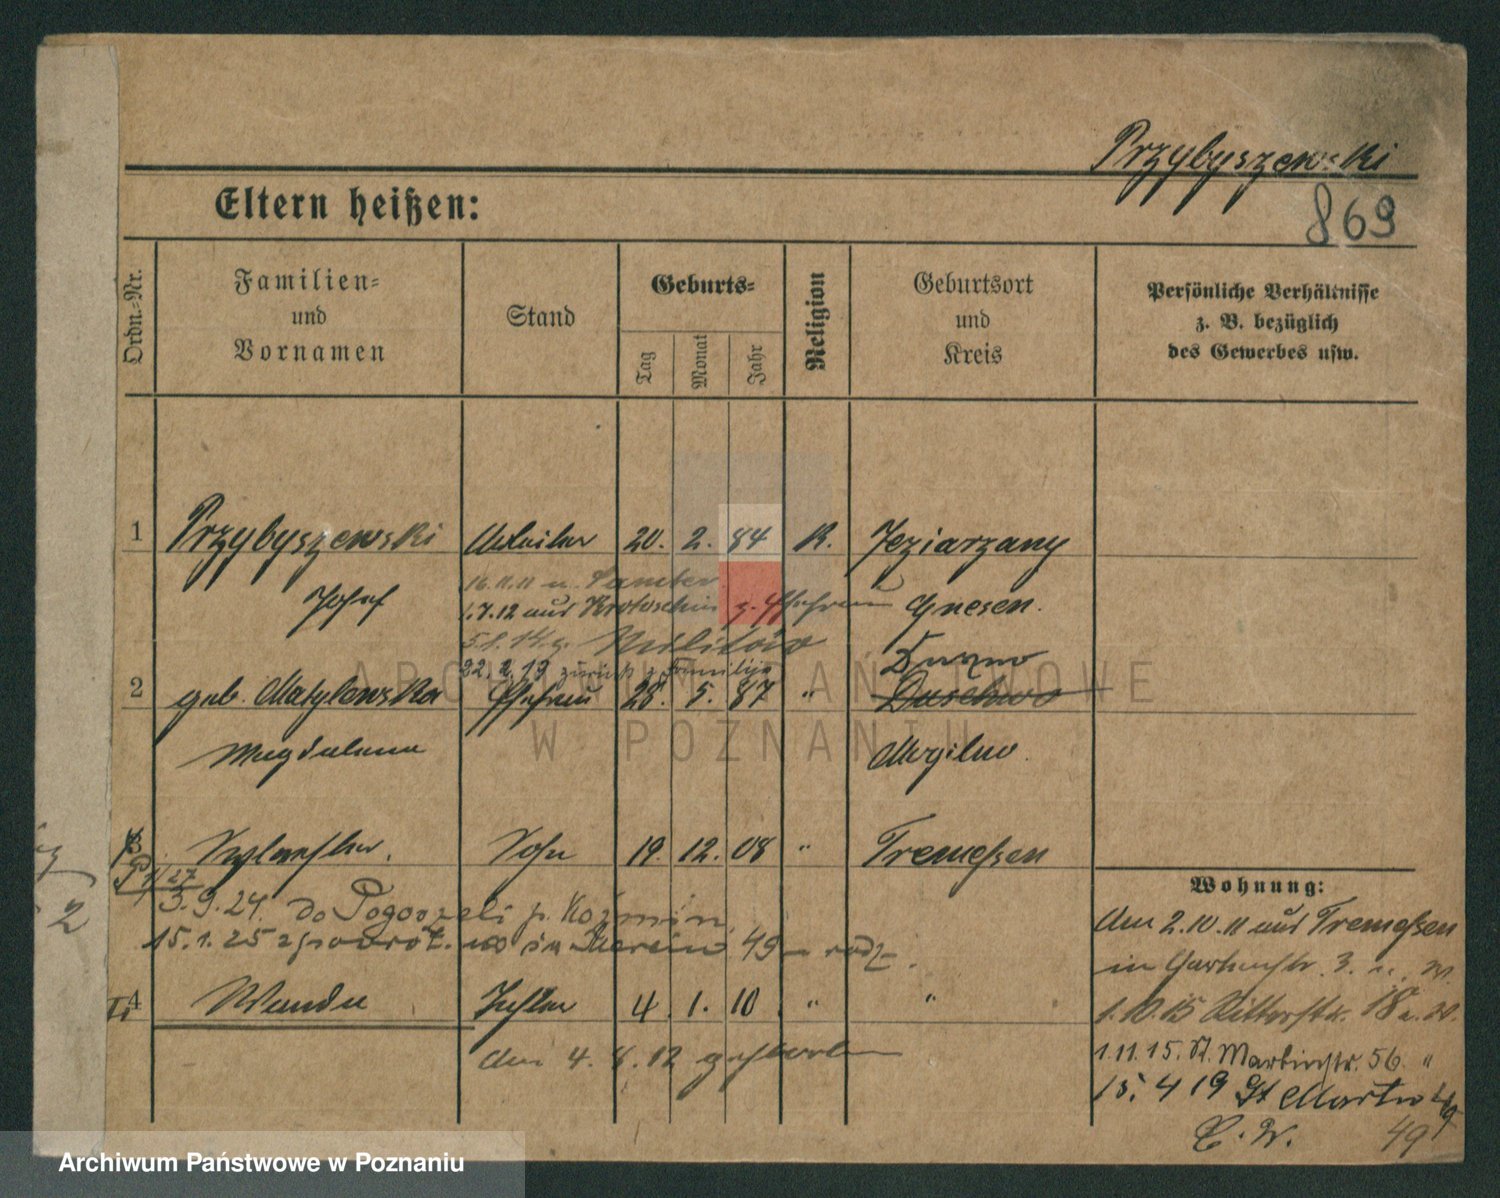 Przybyszewski
Eltern heißen:
869
Ordn.-Nr.
Familien-
und
Vornamen
Stand
Geburts-
Tag
Monat
Jahr
Religion
Geburtsort
und
Kreis
Persönliche Verhältnisse
z. B. bezüglich
des Gewerbes usw.
1 Przybyszewski Arbeiter 20. 2. 84 K. Jeziarzany
Josef Gnesen.
16.11.11 n. Samter
1.7.12 aus Krotoschin z. Ehefrau
5.1.14 z. Militär
22.2.19 zurück z. Familije
Duszno
2 geb. Matylewska Ehefrau 28. 5. 87 " Duschwo
Magdalena Mogilno.
3 Sohn 19. 12. 08 " Tremeßen
27
3.9.24. do Pogorzeli p. Koźmin
15.1.25 z powrót. św Marcin 49 rodz.
4 Wanda Tochter 4. 1. 10 " "
den 4. 8. 12 gestorben
Wohnung:
Am 2.10.11 aus Tremeßen
in Gartenstr. 3. n. W.
1.10.15 Ritterstr. 18 n. W.
1.11.15. St. Martinstr. 56. "
15. 4 19 St Martin 49
C. W. 49
2
ARCHIWUM PAŃSTWOWE
W POZNANIU
Archiwum Państwowe w Poznaniu